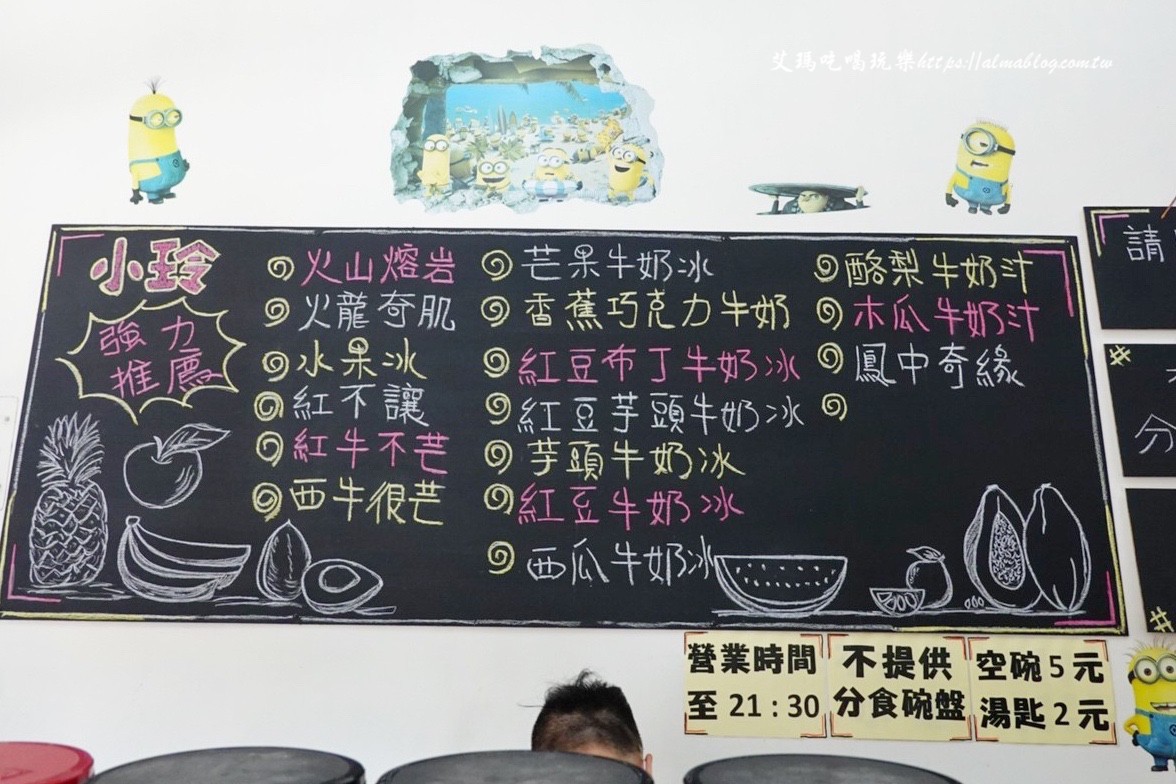 艾瑪吃喝玩樂https://almablog.com.tw
小玲
強力
推薦
火山熔岩
火龍奇肌
水果冰
紅不讓
紅牛不芒
西牛很芒
芒果牛奶冰
香蕉巧克力牛奶
紅豆布丁牛奶冰
紅豆芋頭牛奶冰
芋頭牛奶冰
紅豆牛奶冰
西瓜牛奶冰
酪梨牛奶汁
木瓜牛奶汁
鳳中奇緣
請
分
營業時間
至 21：30
不提供
分食碗盤
空碗5元
湯匙2元